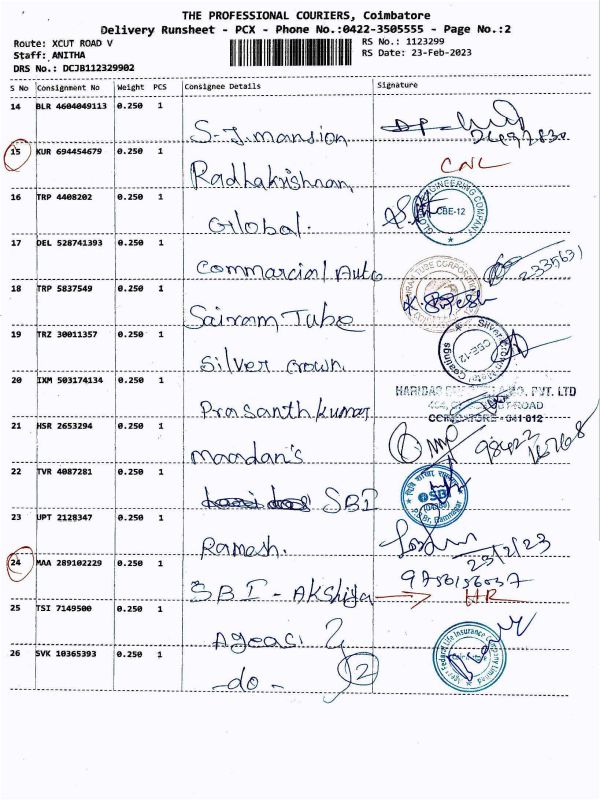 THE PROFESSIONAL COURIERS, Coimbatore
Delivery Runsheet - PCX - Phone No.:0422-3505555 - Page No.:2
Route: XCUT ROAD V
RS No.: 1123299
Staff: ANITHA
RS Date: 23-Feb-2023
DRS No.: DCJB112329902
S No Consignment No Weight PCS Consignee Details Signature
14 BLR 4604049113 0.250 1 S-J. mansion
15 KUR 694454679 0.250 1 Radhakrishnan CNL
16 TRP 4408202 0.250 1 Global. CBE-12
17 DEL 528741393 0.250 1 Commarcial Auto 2335631
18 TRP 5837549 0.250 1 Sairam Tube
19 TRZ 30011357 0.250 1 Silver Crown. CBE-12
20 IXM 503174134 0.250 1 Prasanth kumar
COIMBATORE - 641 012
21 HSR 2653294 0.250 1 maandan's
22 TVR 4087281 0.250 1 SBI
SBI
23 UPT 2128347 0.250 1 Ramesh. 23/2/23
24 MAA 289102229 0.250 1 SBI - Akshiya HR
25 TSI 7149500 0.250 1
26 SVK 10365393 0.250 1 -do- 2